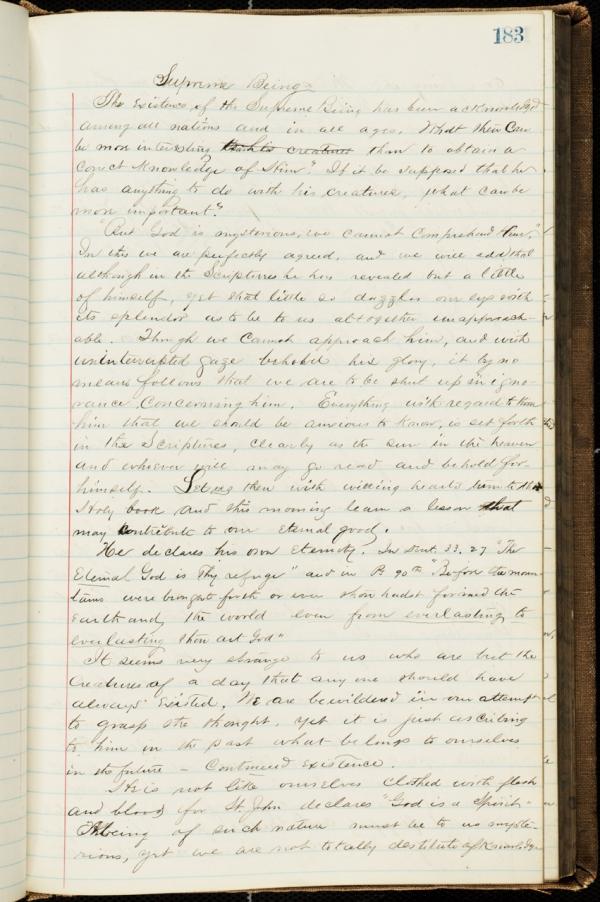 183
Supreme Being
The existence of the Supreme Being has been acknowledged
among all nations and in all ages. What then can
be more interesting than to creatures than to obtain a
correct knowledge of Him? If it be supposed that he
has anything to do with his creatures, what can be
more important?
"But God is mysterious, we cannot comprehend him."
In this we are perfectly agreed, and we will add that
although in the Scriptures he has revealed but a little
of himself, yet that little so dazzles our eyes with
its splendor as to be to us altogether unapproach-
able. Though we cannot approach him, and with
uninterrupted gaze behold his glory, it by no
means follows that we are to be shut up in igno-
rance concerning him. Everything with regard to
him that we should be anxious to know, is set forth
in the Scriptures, clearly as the sun in the heaven
and whoever will may go read and behold for
himself. Let us then with willing hearts turn to the
Holy book and this morning learn a lesson that
may contribute to our eternal good.
He declares his own Eternity. In Deut. 33. 27 "The
Eternal God is thy refuge" and in Ps 90th "Before the moun-
tains were brought forth or ever thou hadst formed the
earth and the world even from everlasting to
everlasting thou art God"
It seems very strange to us who are but the
creatures of a day that any one should have
always existed. We are bewildered in our attempt
to grasp the thought, yet it is just ascribing
to him in the past what belongs to ourselves
in the future – Continued existence.
He is not like ourselves clothed with flesh
and blood for St. John declares "God is a Spirit"
A being of such nature must be to us myste-
rious, yet we are not totally destitute of knowledge